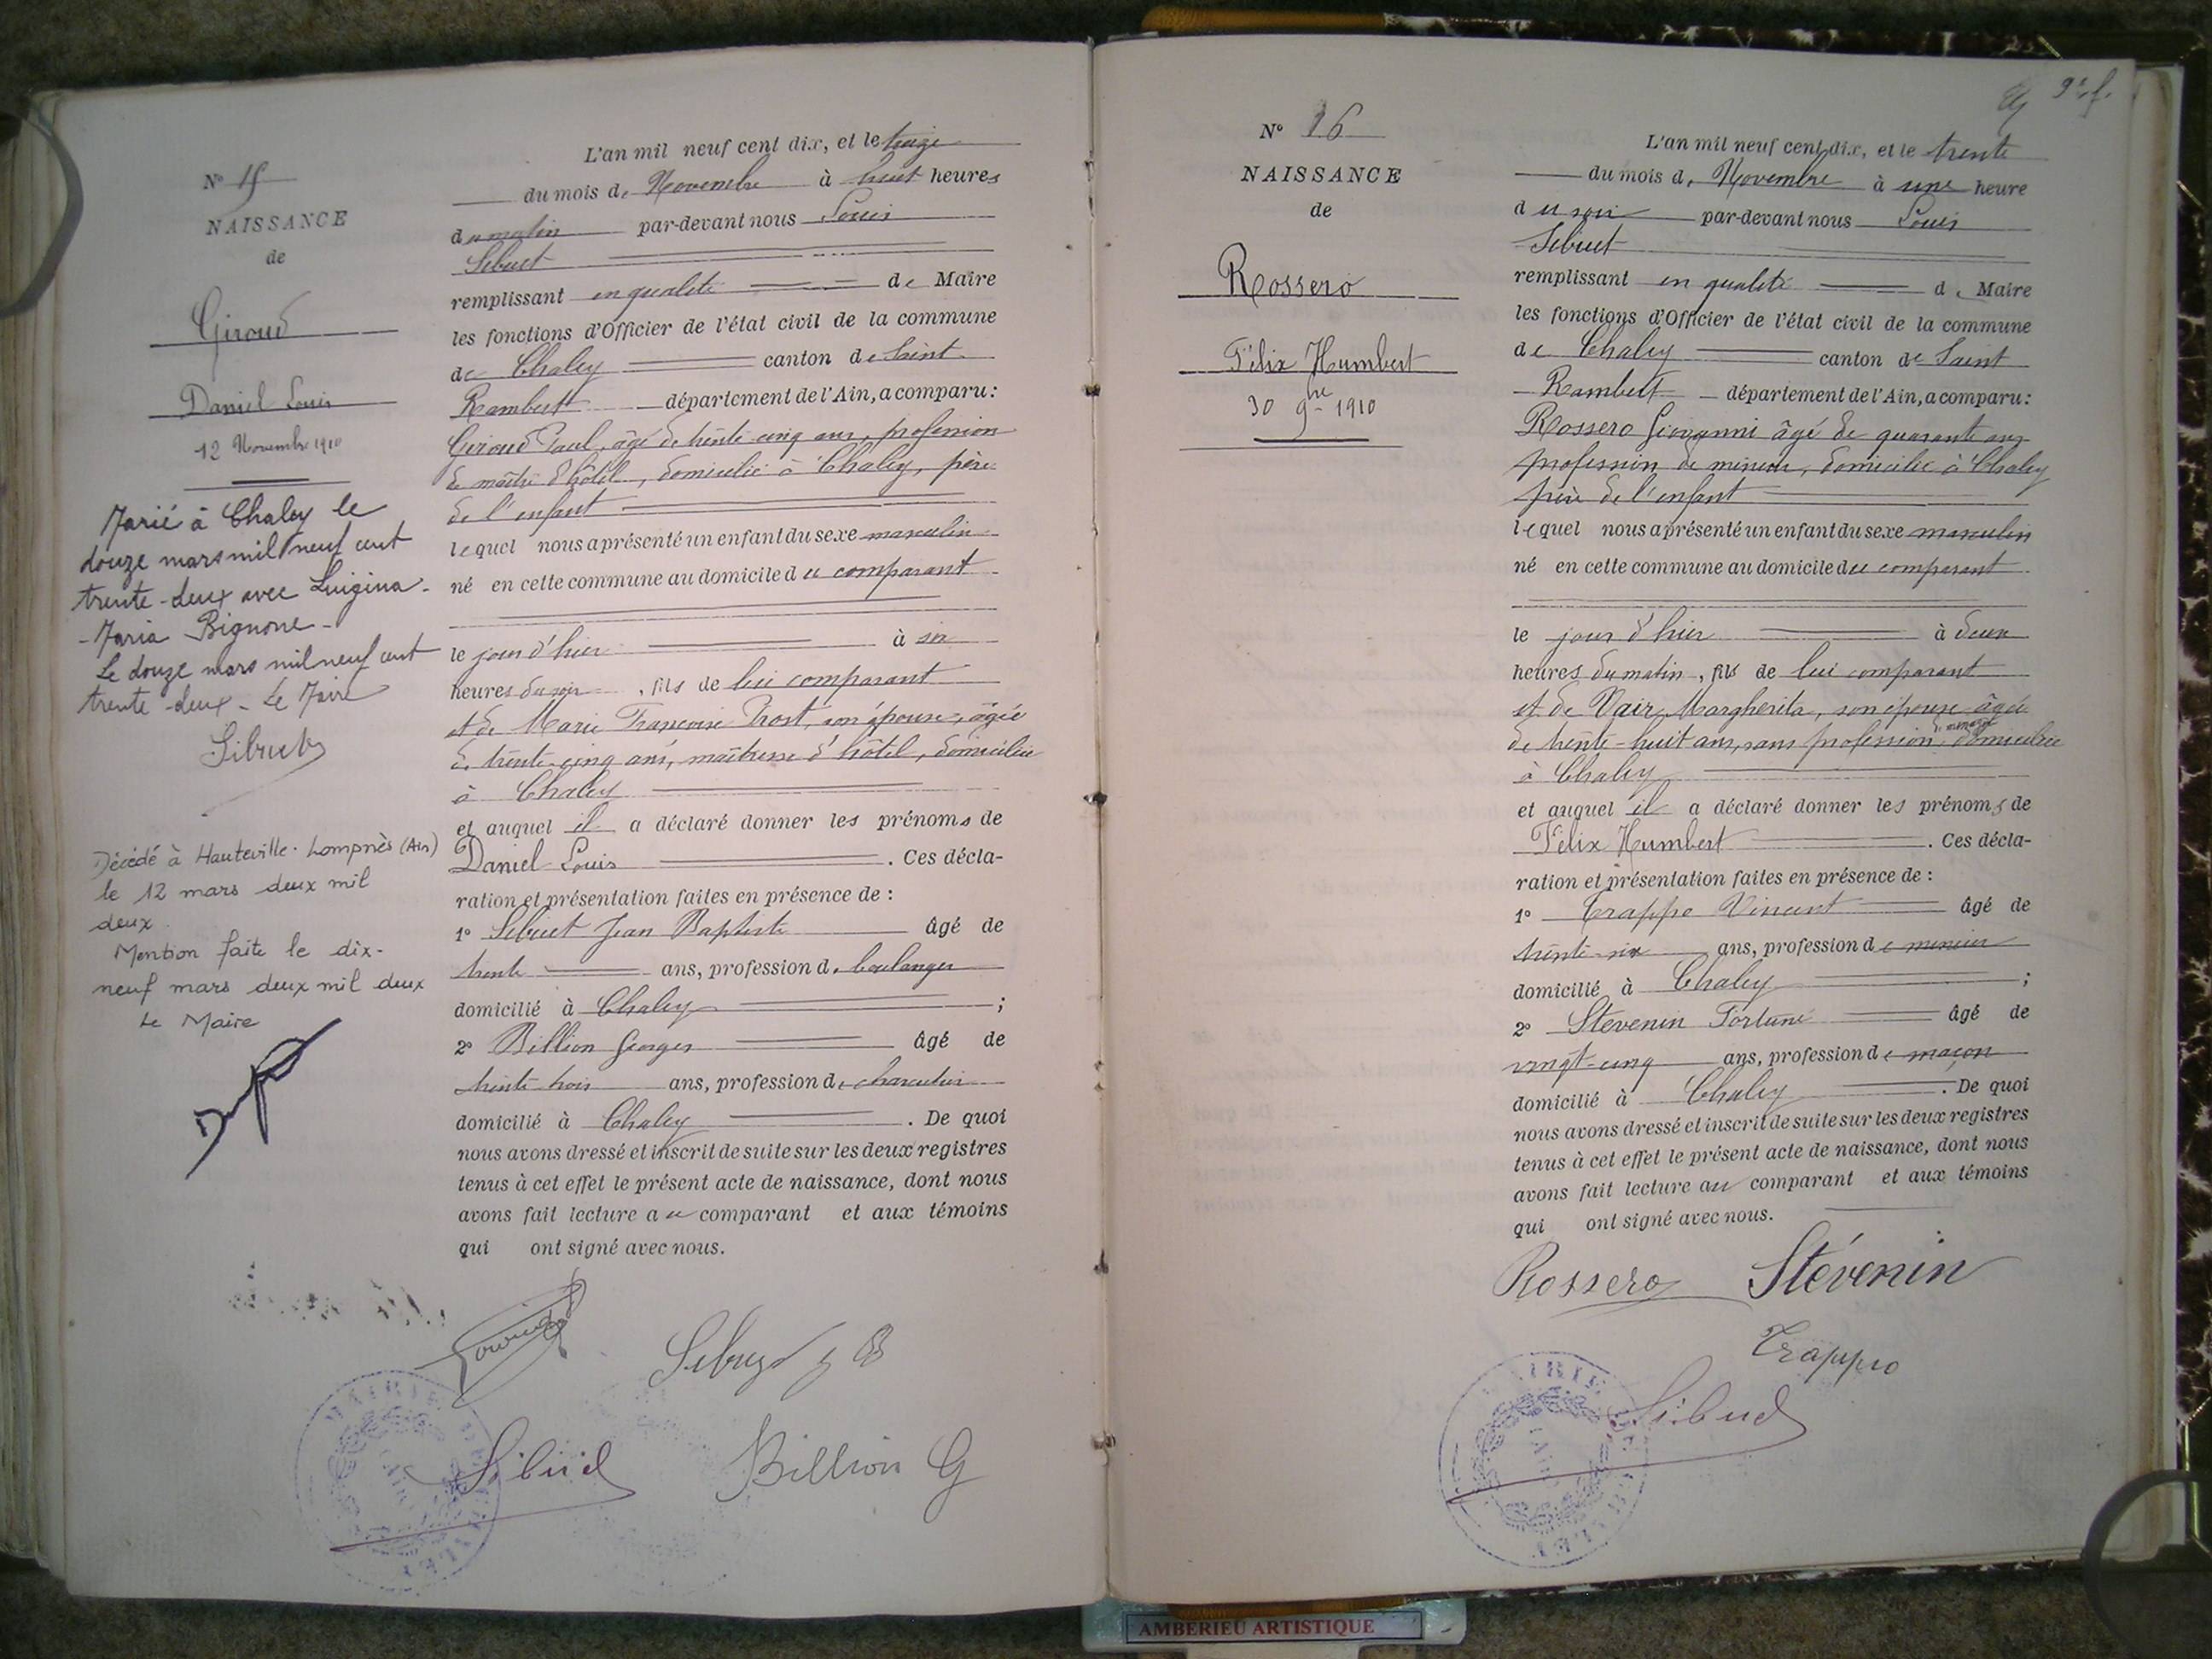 N° 15
NAISSANCE
de
Giroud
Daniel Louis
12 Novembre 1910
Marié à Chaley le
douze mars mil neuf cent
trente-deux avec Luigina-
-Maria Bignone-
Le douze mars mil neuf cent
trente-deux - Le Maire
Sibuet
Décédé à Hauteville-Lompnès (Ain)
le 12 mars deux mil
deux.
Mention faite le dix-
neuf mars deux mil deux
Le Maire
L'an mil neuf cent dix, et le treize
du mois de Novembre à huit heures
du matin par-devant nous Louis
Sibuet
remplissant en qualité de Maire
les fonctions d'Officier de l'état civil de la commune
de Chaley canton de Saint
Rambert département de l'Ain, a comparu:
Giroud Paul, âgé de trente cinq ans, profession
de maître d'hôtel, domicilié à Chaley, père
de l'enfant
lequel nous a présenté un enfant du sexe masculin
né en cette commune au domicile du comparant
le jour d'hier à six
heures du soir, fils de lui comparant
et de Marie Françoise Prost, son épouse, âgée
de trente-cinq ans, maîtresse d'hôtel, domiciliée
à Chaley
et auquel il a déclaré donner les prénoms de
Daniel Louis. Ces décla-
ration et présentation faites en présence de :
1° Sibuet Jean Baptiste âgé de
trente ans, profession de boulanger
domicilié à Chaley ;
2° Billion Georges âgé de
trente trois ans, profession de charcutier
domicilié à Chaley. De quoi
nous avons dressé et inscrit de suite sur les deux registres
tenus à cet effet le présent acte de naissance, dont nous
avons fait lecture au comparant et aux témoins
qui ont signé avec nous.
Sibuet J B
Sibuet Billion G
N° 16
NAISSANCE
de
Rossero
Félix Humbert
30 9bre 1910
L'an mil neuf cent dix, et le trente
du mois de Novembre à une heure
du soir par-devant nous Louis
Sibuet
remplissant en qualité de Maire
les fonctions d'Officier de l'état civil de la commune
de Chaley canton de Saint
Rambert département de l'Ain, a comparu:
Rossero Giovanni âgé de quarante ans
profession de mineur, domicilié à Chaley
père de l'enfant
lequel nous a présenté un enfant du sexe masculin
né en cette commune au domicile du comparant
le jour d'hier à deux
heures du matin, fils de lui comparant
et de Vair Margherita, son épouse âgée
de trente-huit ans, sans profession domiciliée
à Chaley
et auquel il a déclaré donner les prénoms de
Félix Humbert. Ces décla-
ration et présentation faites en présence de :
1° Trappo Vincent âgé de
trente-six ans, profession de mineur
domicilié à Chaley ;
2° Stevenin Fortuné âgé de
vingt-cinq ans, profession de maçon
domicilié à Chaley. De quoi
nous avons dressé et inscrit de suite sur les deux registres
tenus à cet effet le présent acte de naissance, dont nous
avons fait lecture au comparant et aux témoins
qui ont signé avec nous.
Rossero Stévenin
Trappo
Sibuet
AMBERIEU ARTISTIQUE